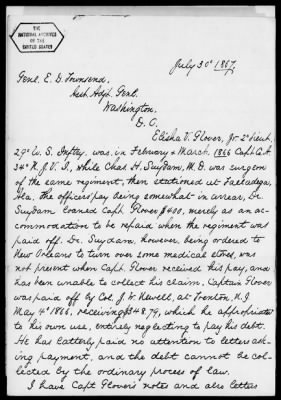 THE
NATIONAL ARCHIVES
OF THE
UNITED STATES
July 30th 1867.
Genl. E. D. Townsend,
Asst. Adjt. Genl.
Washington,
D. C.
Elisha V. Glover, Jr 2d Lieut.
29th U. S. Inftry. was, in February & March 1866 Capt. Co. A.
34th N. J. V. I., while Chas H. Suydam, M. D. was surgeon
of the same regiment, then stationed at Talladega,
Ala. The officers pay being somewhat in arrear, Dr.
Suydam loaned Capt. Glover $400, merely as an ac-
commodation to be repaid when the regiment was
paid off. Dr. Suydam, however, being ordered to
New Orleans to turn over some medical stores, was
not present when Capt. Glover received his pay, and
has been unable to collect his claim. Captain Glover
was paid off by Col. J. W. Newell, at Trenton, N.J.
May 4th 1866, receiving $348.79, which he appropriated
to his own use, entirely neglecting to pay his debt.
He has latterly paid no attention to letters ask-
ing payment, and the debt cannot be col-
lected by the ordinary process of law.
I have Capt Glover's notes and also letters